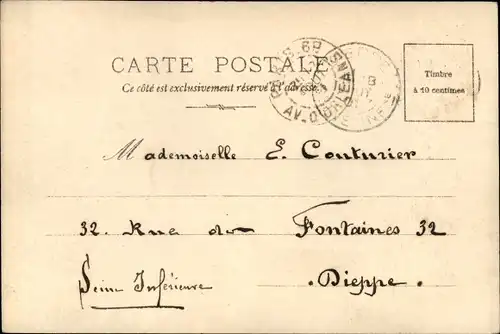 CARTE POSTALE
Ce côté est exclusivement réservé à l'adresse.
PARIS 68
AV. D'ORLEANS
Timbre
à 10 centimes
Mademoiselle E. Couturier
32. Rue des Fontaines 32
Seine Inférieure
. Dieppe .